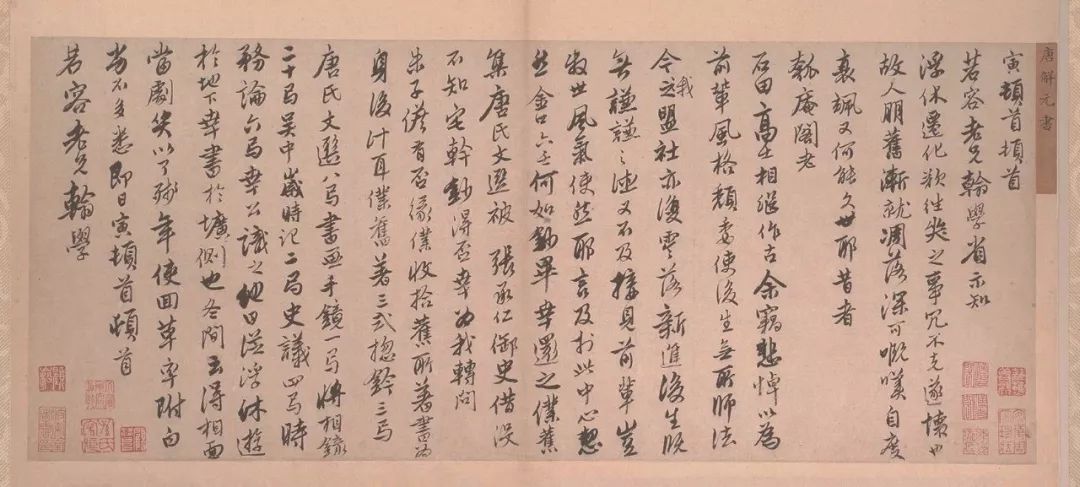 唐解元書
寅頓首頓首
若容老兄翰學省示知
浮休遷化歉往奠之事冗不克遂懷也
故人朋舊漸就凋落深可嘅嘆自度
衰颯又何能久世耶昔者
瓠庵閣老
石田高士相繼作古余竊悲悼以爲
前輩風格頹委使後生無所師法
我
今之盟社亦復零落新進後生既
無謙謙之德又不及接見前輩豈
叔世風氣使然耶言及於此中心愁
然金口六壬何如鈔畢幸還之僕舊
集唐氏文選被 張承仁御史借沒
不知宅幹鈔得否幸為我轉問
朱子儋有否緣僕收拾舊所著書為
身後計耳僕舊著三式揔鈐三卷
唐氏文選八卷書畫手鏡一卷將相錄
二十卷吳中歲時記二卷史議四卷時
務論六卷幸公識之他日從浮休遊
於地下幸書於壙側也冬間云得相面
當劇笑以了殘年使回草率附白
尚不多悉即日寅頓首頓首
若容老兄翰學